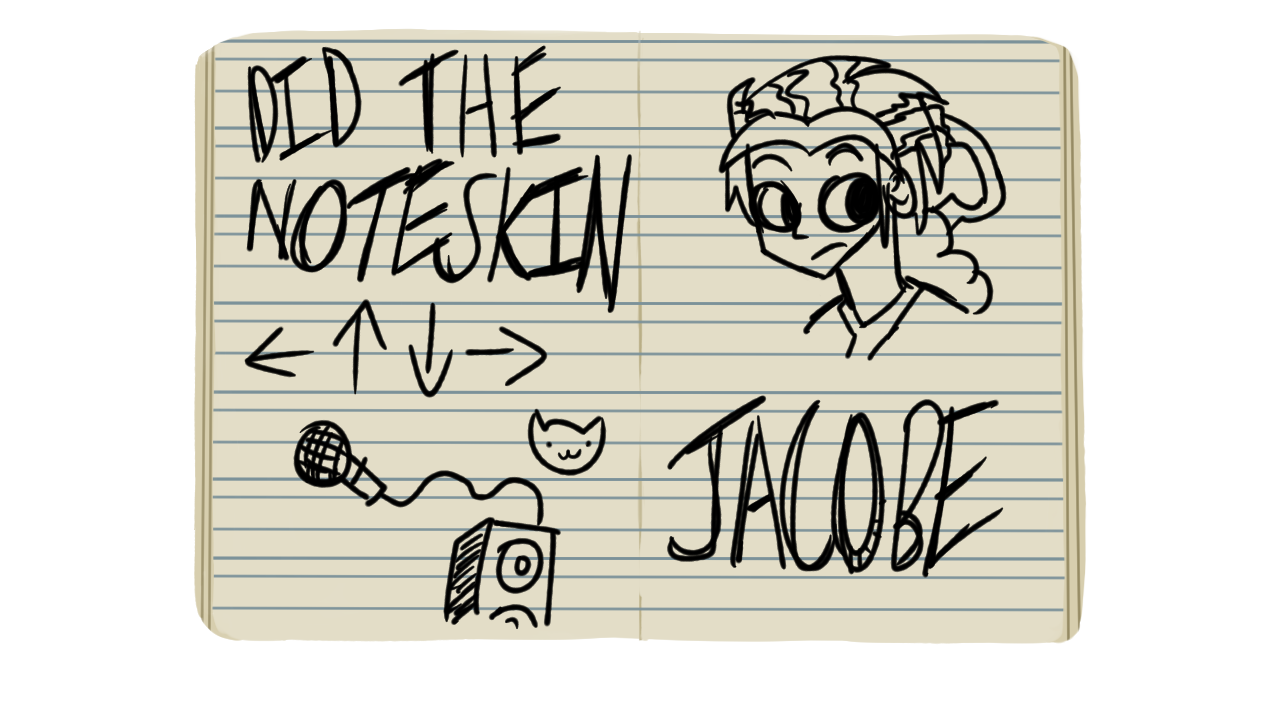 DID THE
NOTESKIN
← ↑ ↓ →
JACOBE